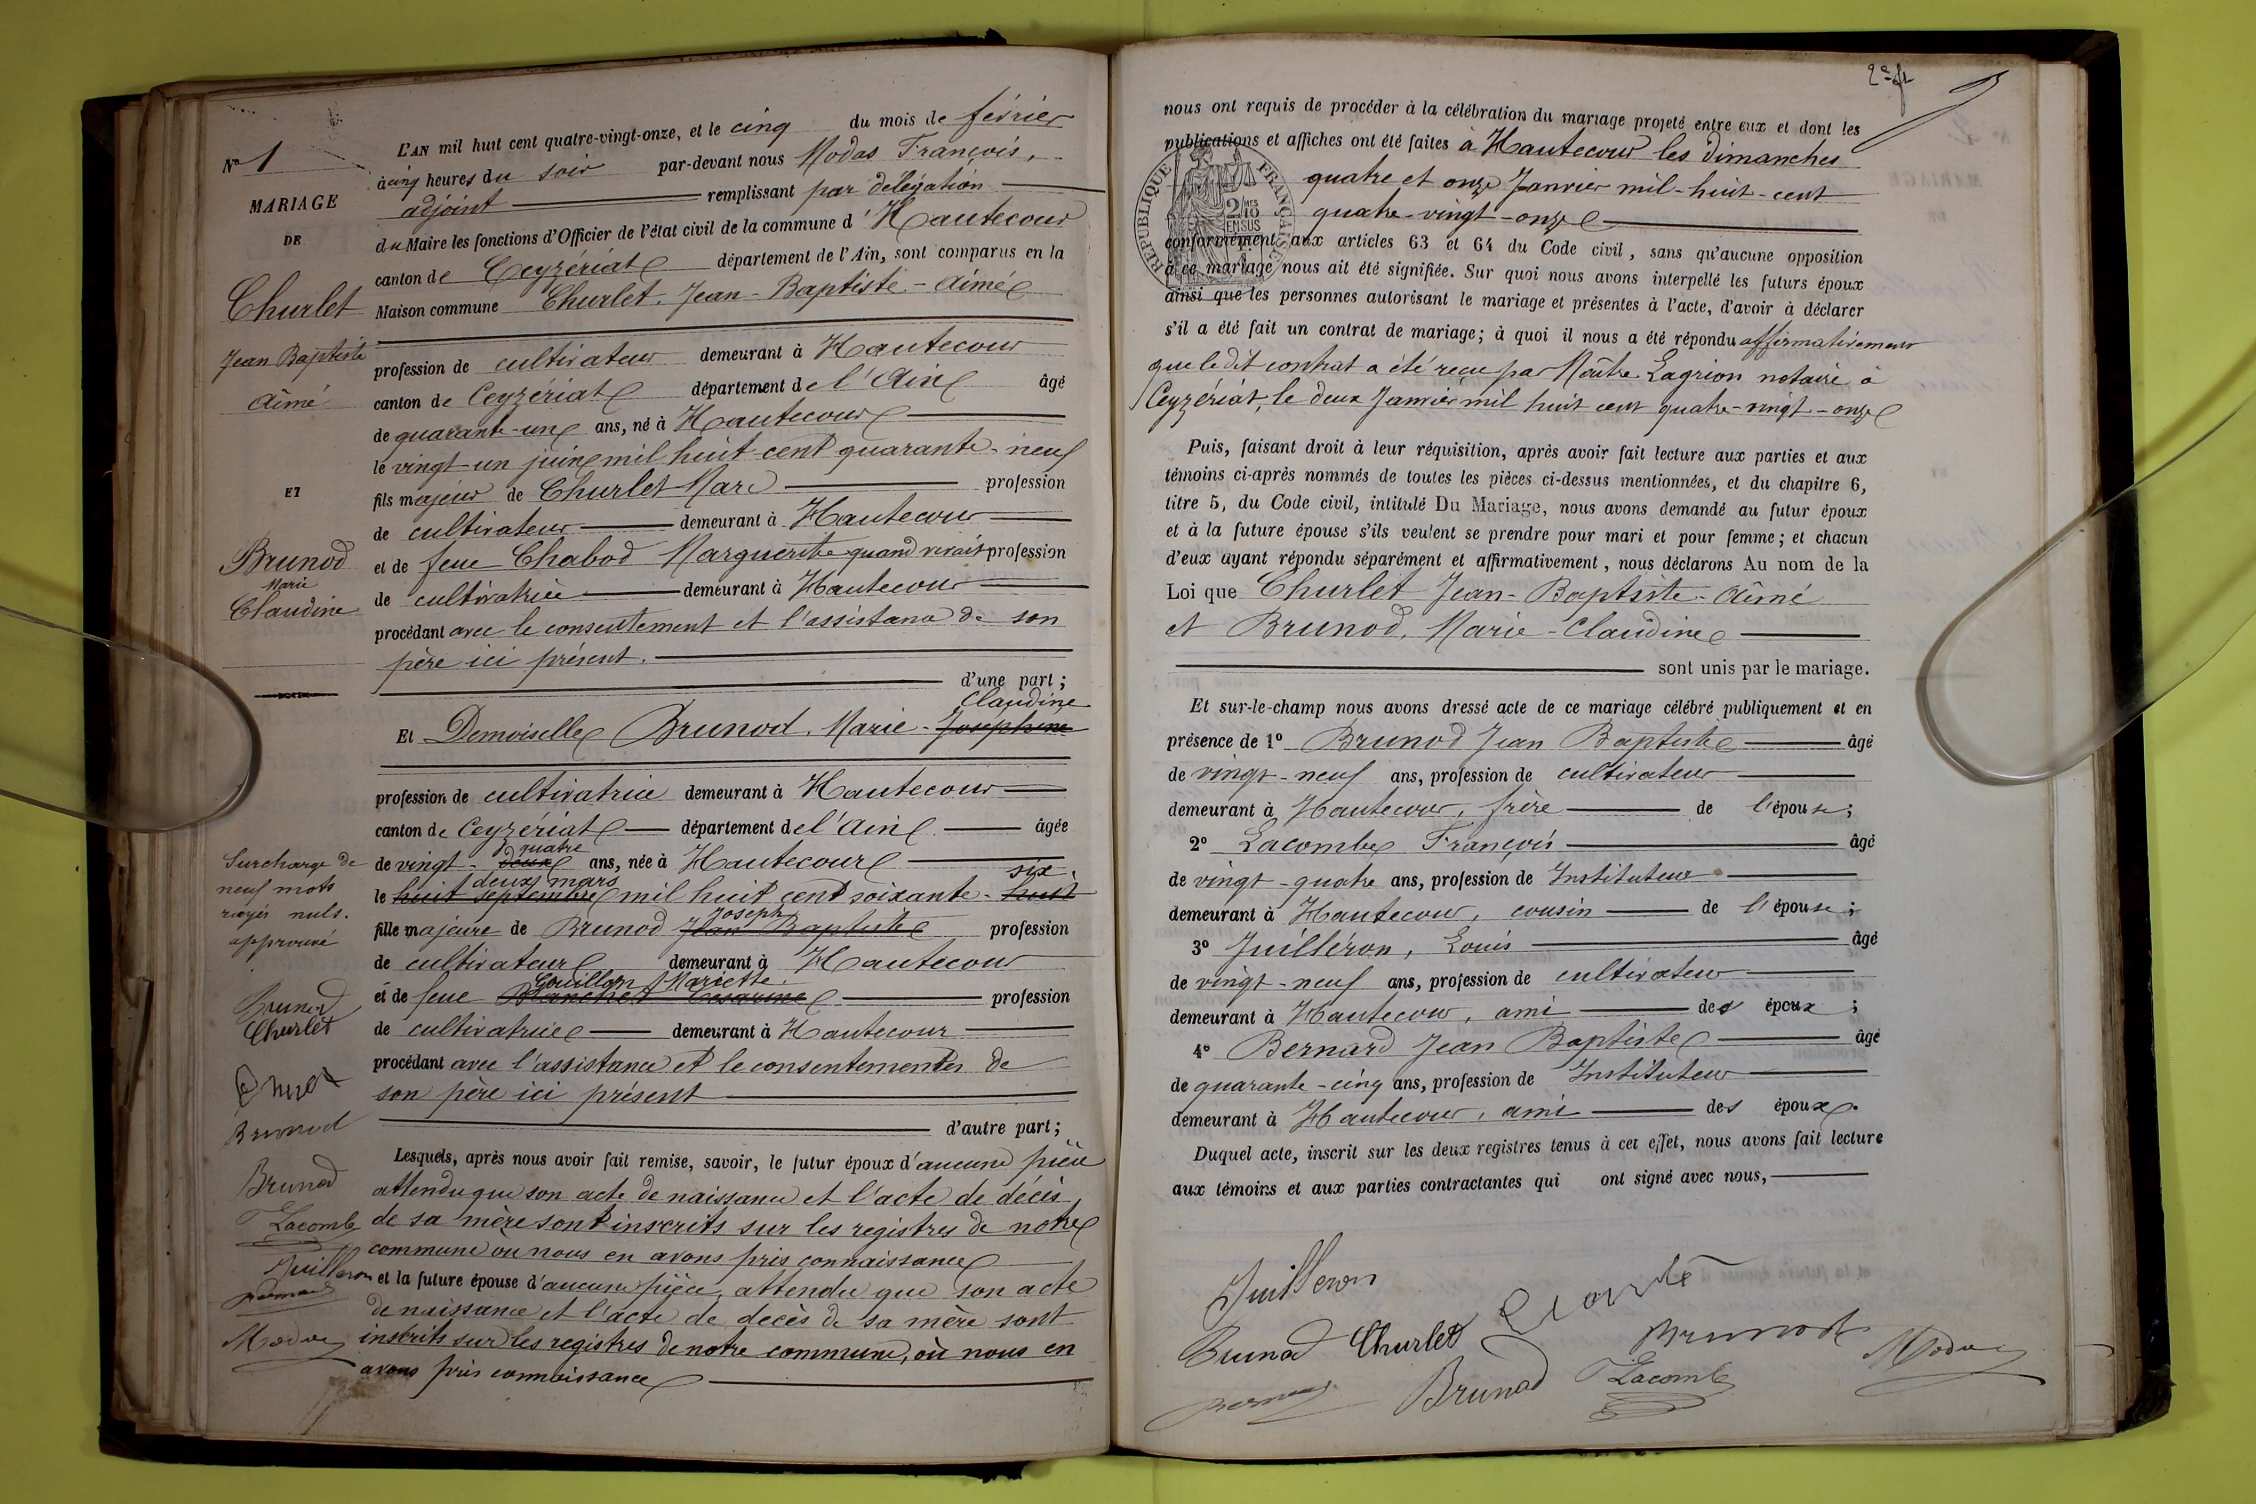 N° 1
MARIAGE
DE
Churlet
Jean Baptiste
Aimé
ET
Brunod
Marie
Claudine
Surcharge de
neuf mots
rayés nuls.
approuvé
Brunod
Churlet
Brunod
Brunod
F Lacombe
Juilleron
Bernard
Modas
L'AN mil huit cent quatre-vingt-onze, et le cinq du mois de février
à cinq heures du soir par-devant nous Modas François,
adjoint remplissant par délégation
du Maire les fonctions d'Officier de l'état civil de la commune d'Hautecour
canton de Ceyzériat département de l'Ain, sont comparus en la
Maison commune Churlet, Jean-Baptiste-Aimé
profession de cultivateur demeurant à Hautecour
canton de Ceyzériat département de l'Ain âgé
de quarante-un ans, né à Hautecour
le vingt-un juin mil huit cent quarante-neuf
fils majeur de Churlet Marc profession
de cultivateur demeurant à Hautecour
et de feue Chabod Marguerite quand vivait profession
de cultivatrice demeurant à Hautecour
procédant avec le consentement et l'assistance de son
père ici présent.
d'une part;
Claudine
Et Demoiselle Brunod, Marie-Josephine
profession de cultivatrice demeurant à Hautecour
canton de Ceyzériat département de l'Ain âgée
quatre
de vingt-deux ans, née à Hautecour
deux mars six
le huit Septembre mil huit cent soixante-huit
Joseph
fille majeure de Brunod Jean Baptiste profession
de cultivateur demeurant à Hautecour
Gouillon Mariette
et de feue Blanchet Césarine profession
de cultivatrice demeurant à Hautecour
procédant avec l'assistance et le consentement de
son père ici présent
d'autre part;
Lesquels, après nous avoir fait remise, savoir, le futur époux d'aucune pièce
attendu que son acte de naissance et l'acte de décès
de sa mère sont inscrits sur les registres de notre
commune où nous en avons pris connaissance
et la future épouse d'aucune pièce, attendu que son acte
de naissance et l'acte de décès de sa mère sont
inscrits sur les registres de notre commune, où nous en
avons pris connaissance
nous ont requis de procéder à la célébration du mariage projeté entre eux et dont les
publications et affiches ont été faites à Hautecour les dimanches
quatre et onze Janvier mil-huit-cent
quatre-vingt-onze
RÉPUBLIQUE FRANÇAISE
2/10 MES
EN SUS
conformément aux articles 63 et 64 du Code civil, sans qu'aucune opposition
à ce mariage nous ait été signifiée. Sur quoi nous avons interpellé les futurs époux
ainsi que les personnes autorisant le mariage et présentes à l'acte, d'avoir à déclarer
s'il a été fait un contrat de mariage; à quoi il nous a été répondu affirmativement
que le dit contrat a été reçu par Maître Lagrion notaire à
Ceyzériat, le deux Janvier mil huit cent quatre-vingt-onze
Puis, faisant droit à leur réquisition, après avoir fait lecture aux parties et aux
témoins ci-après nommés de toutes les pièces ci-dessus mentionnées, et du chapitre 6,
titre 5, du Code civil, intitulé Du Mariage, nous avons demandé au futur époux
et à la future épouse s'ils veulent se prendre pour mari et pour femme; et chacun
d'eux ayant répondu séparément et affirmativement, nous déclarons Au nom de la
Loi que Churlet Jean-Baptiste-Aimé
et Brunod, Marie-Claudine
sont unis par le mariage.
Et sur-le-champ nous avons dressé acte de ce mariage célébré publiquement et en
présence de 1° Brunod Jean Baptiste âgé
de vingt-neuf ans, profession de cultivateur
demeurant à Hautecour, frère de l'épouse;
2° Lacombe François âgé
de vingt-quatre ans, profession de Instituteur
demeurant à Hautecour, cousin de l'épouse;
3° Juilléron, Louis âgé
de vingt-neuf ans, profession de cultivateur
demeurant à Hautecour, ami des époux;
4° Bernard Jean Baptiste âgé
de quarante-cinq ans, profession de Instituteur
demeurant à Hautecour, ami des époux.
Duquel acte, inscrit sur les deux registres tenus à cet effet, nous avons fait lecture
aux témoins et aux parties contractantes qui ont signé avec nous,
Juilleron
Brunod Churlet Brunod Modas
Bernard Brunod F Lacombe